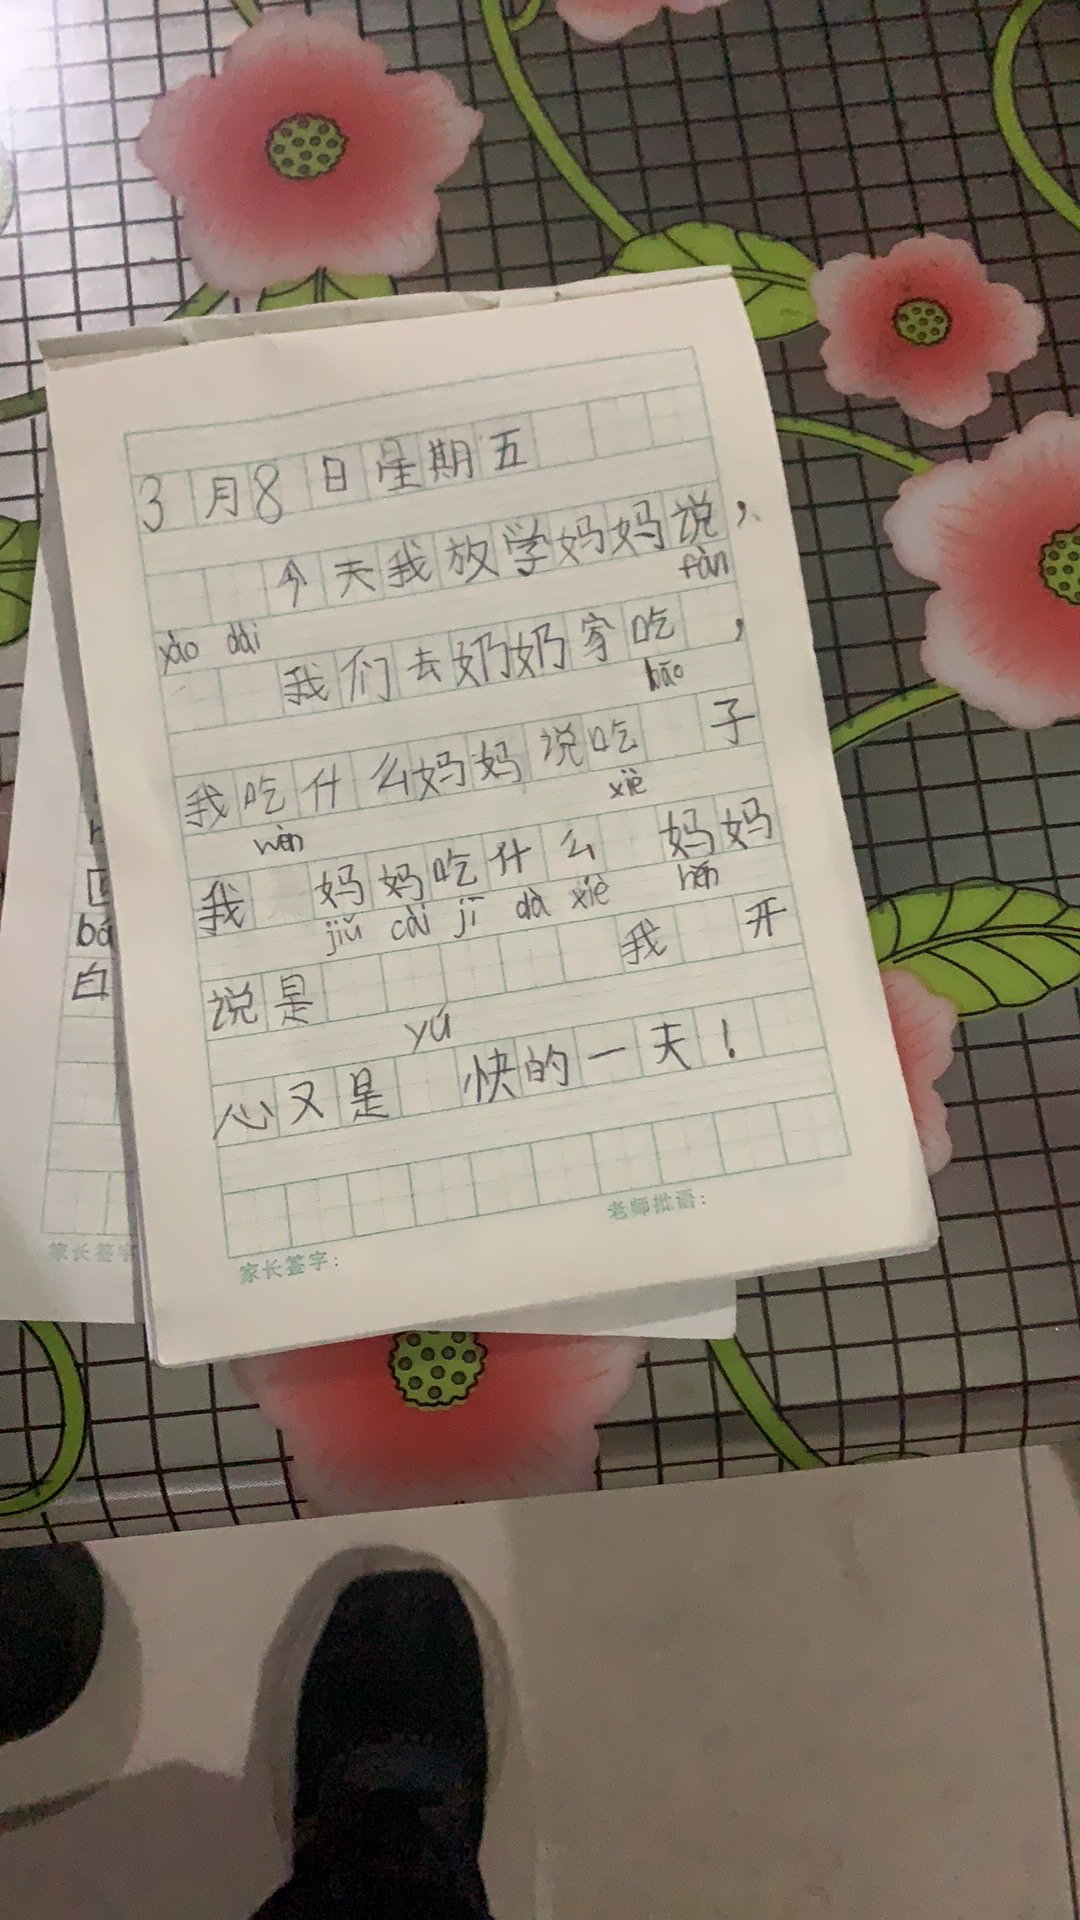 3月8日星期五
今天我放学妈妈说，
xiǎo dài 我们去奶奶家吃 fàn ，
我吃什么妈妈说吃 bāo 子
我 wèn 妈妈吃什么 xiè 妈妈
说是 jiǔ cài jī dà xiè 我 hěn 开
心又是 yú 快的一天！
家长签字：
老师批语：
bá
白
家长签字